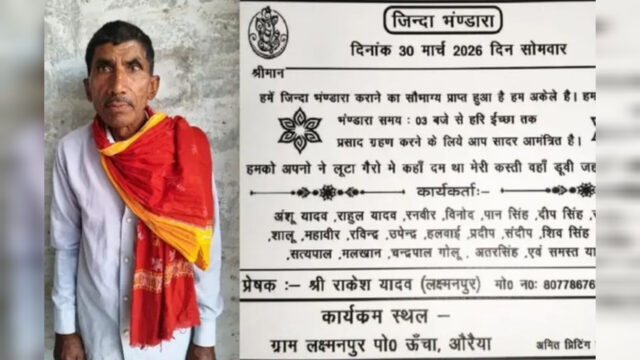 जिन्दा भंण्डारा
दिनांक 30 मार्च 2026 दिन सोमवार
श्रीमान
हमें जिन्दा भंण्डारा कराने का सौभाग्य प्राप्त हुआ है हम अकेले है। हम
भंण्डारा समय : 03 बजे से हरि ईच्छा तक
प्रसाद ग्रहण करने के लिये आप सादर आमंत्रित है।
हमको अपनो ने लूटा गैरो मे कहाँ दम था मेरी कस्ती वहाँ डूवी जह
कार्यकर्ताः-
अंशू यादव ,राहुल यादव ,रनवीर ,विनोद ,पान सिंह ,दीप सिंह
,शालू ,महावीर ,रविन्द्र ,उपेन्द्र ,हलवाई ,प्रदीप ,संदीप ,शिव सिंह
सत्यपाल ,मलखान ,चन्द्रपाल गोलू , अतरसिंह ,एवं समस्त या
प्रेषक :– श्री राकेश यादव (लक्ष्मनपुर) मो० नं०: 80778676
कार्यकम स्थल –
ग्राम लक्ष्मनपुर पो0 ऊँचा, औरैया
अमित प्रिटिंग